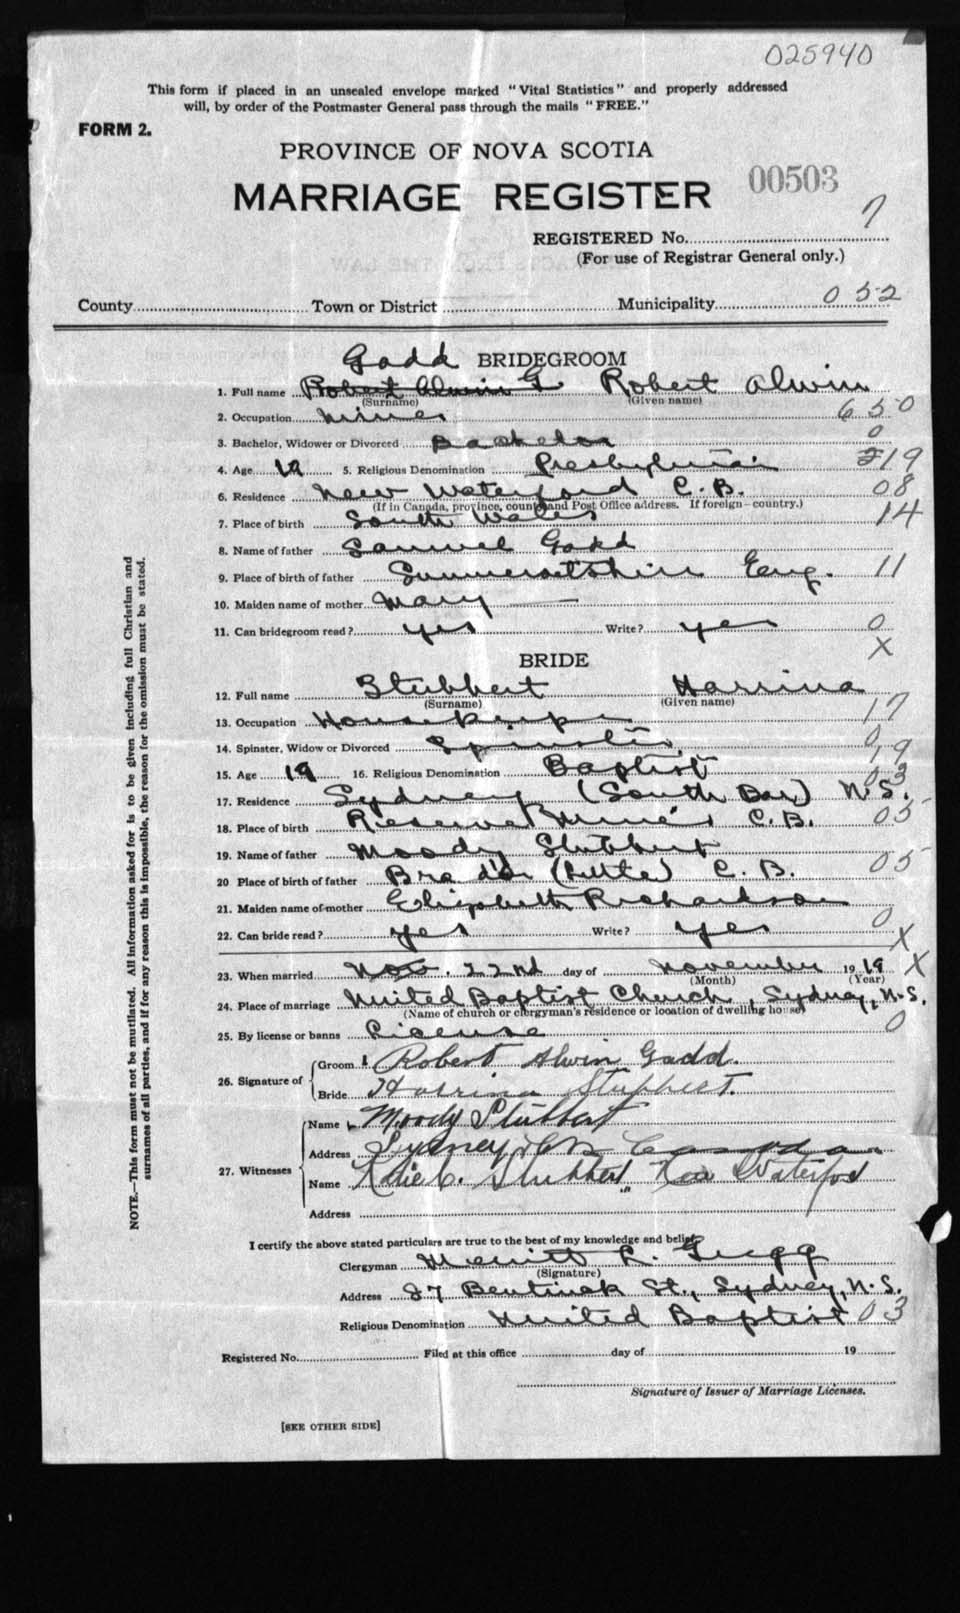 025940
This form if placed in an unsealed envelope marked "Vital Statistics" and properly addressed
will, by order of the Postmaster General pass through the mails "FREE."
FORM 2.
PROVINCE OF NOVA SCOTIA
MARRIAGE REGISTER 00503
REGISTERED No. 7
(For use of Registrar General only.)
County Town or District Municipality 052
Gadd BRIDEGROOM
1. Full name Robert Alwin G Robert Alwin
(Surname) (Given name)
2. Occupation Miner 650
3. Bachelor, Widower or Divorced Bachelor 0
4. Age 19 5. Religious Denomination Presbyterian 19
6. Residence New Waterford C.B. 08
(If in Canada, province, county and Post Office address. If foreign—country.)
7. Place of birth South Wales 14
8. Name of father Samuel Gadd
9. Place of birth of father Summersetshire Eng. 11
10. Maiden name of mother Mary —
11. Can bridegroom read? yes Write? yes 0
X
BRIDE
12. Full name Stubbert Harrina
(Surname) (Given name)
13. Occupation Housekeeper 17
14. Spinster, Widow or Divorced Spinster 0
15. Age 19 16. Religious Denomination Baptist 19
03
17. Residence Sydney (South Bar) N.S.
18. Place of birth Reserve Mines C.B. 05
19. Name of father Moody Stubbert
20 Place of birth of father Bra d'or (Little) C.B. 05
21. Maiden name of mother Elizabeth Richardson
22. Can bride read? yes Write? yes 0
X
23. When married Nov. 22nd day of November 1919 X
(Month) (Year)
24. Place of marriage United Baptist Church, Sydney, N.S.
(Name of church or clergyman's residence or location of dwelling house)
25. By license or banns License 0
26. Signature of Groom Robert Alwin Gadd.
Bride Harrina Stubbert.
27. Witnesses Name Moody Stubbert
Address Sydney CB Canada
Name Katie C. Stubbert New Waterford
Address
I certify the above stated particulars are true to the best of my knowledge and belief.
Clergyman Merritt L. Gregg
(Signature)
Address 27 Bentinck St., Sydney, N.S.
Religious Denomination United Baptist 03
Registered No. Filed at this office day of 19
Signature of Issuer of Marriage Licenses.
[SEE OTHER SIDE]
NOTE.—This form must not be mutilated. All information asked for is to be given including full Christian and
surnames of all parties, and if for any reason this is impossible, the reason for the omission must be stated.